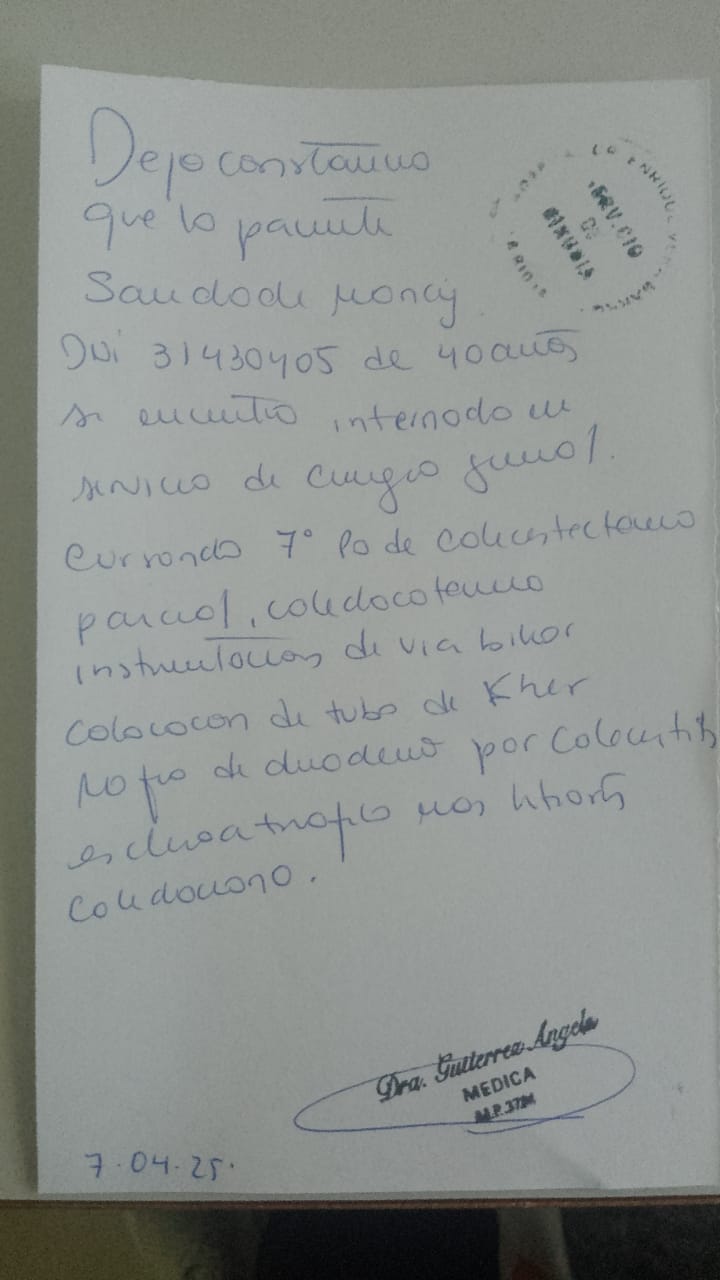 Dejo constancia
que la paciente
Saudade Moncy
DNI 31430405 de 40 años
se encuentra internado en
servicio de cirugía general.
Cursando 7° Po de colecistectomia
parcial, coledocotomia
instrumentación de via biliar
colocacion de tubo de Kher
Rafia de duodeno por colecistitis
escleroatrofica mas litiasis
coledociana.
SERVICIO
DE
CIRUGIA
Dra. Gutierrez Angela
MEDICA
7.04.25.